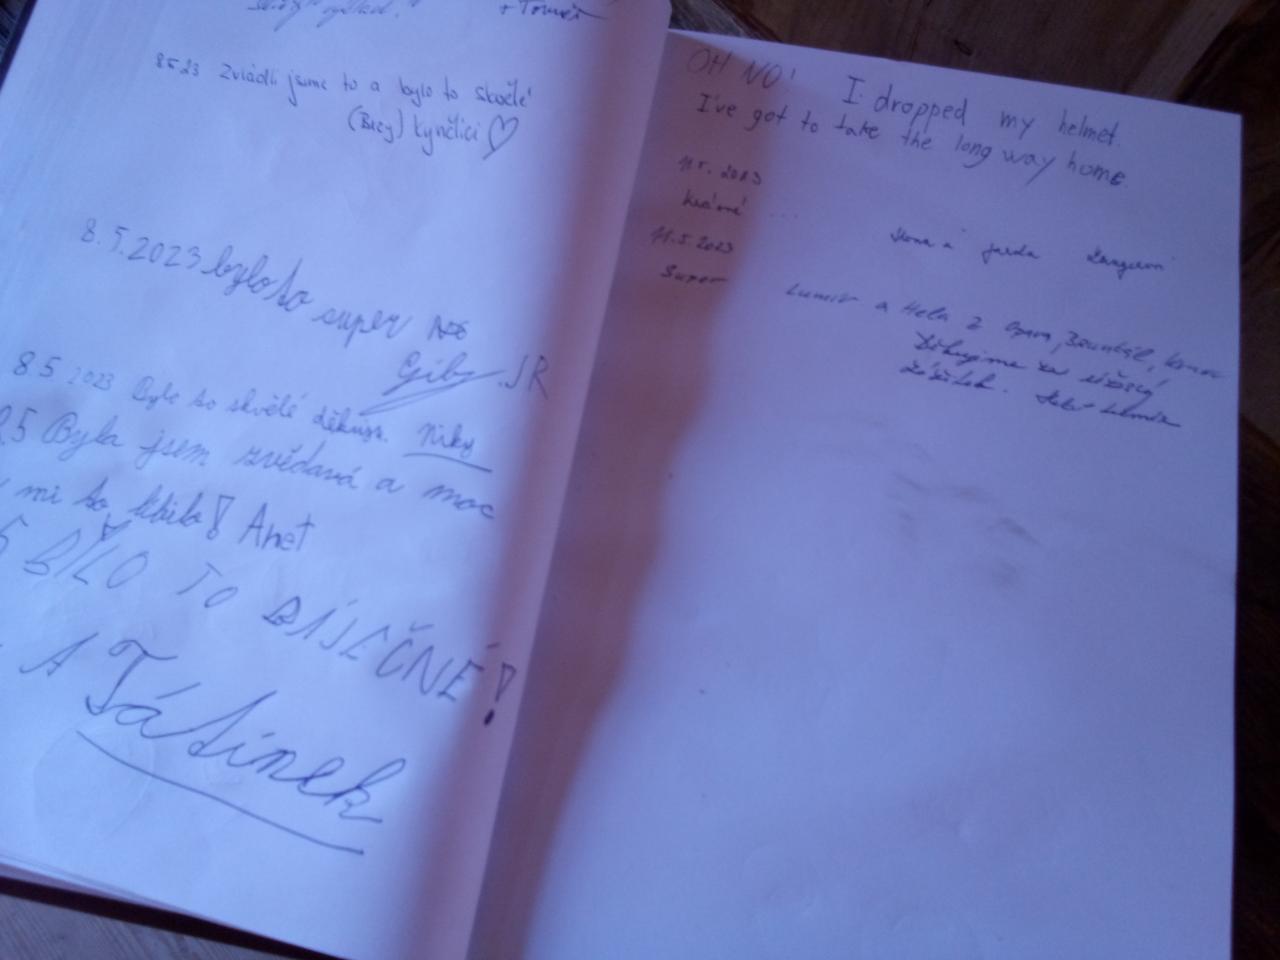 + Tomáš
8.5.23 Zvládli jsme to a bylo to skvělé
(Brzy) kynělíci ♡
8.5.2023 bylo to
super
Giby. JR
8 5 2023 Bylo to skvělé děkuju. Niky
Byla jsem zvědavá a moc
mi to líbilo! Anet
BÍLO TO BÁJEČNÉ!
A Tátinek
OH NO! I dropped my helmet.
I've got to take the long way home.
11.5.2023
Krásné ...
a Jarda
11.5.2023
Super
Lumír a Hela z Opava, Bruntál,
Děkujeme za úžasný
zážitek.